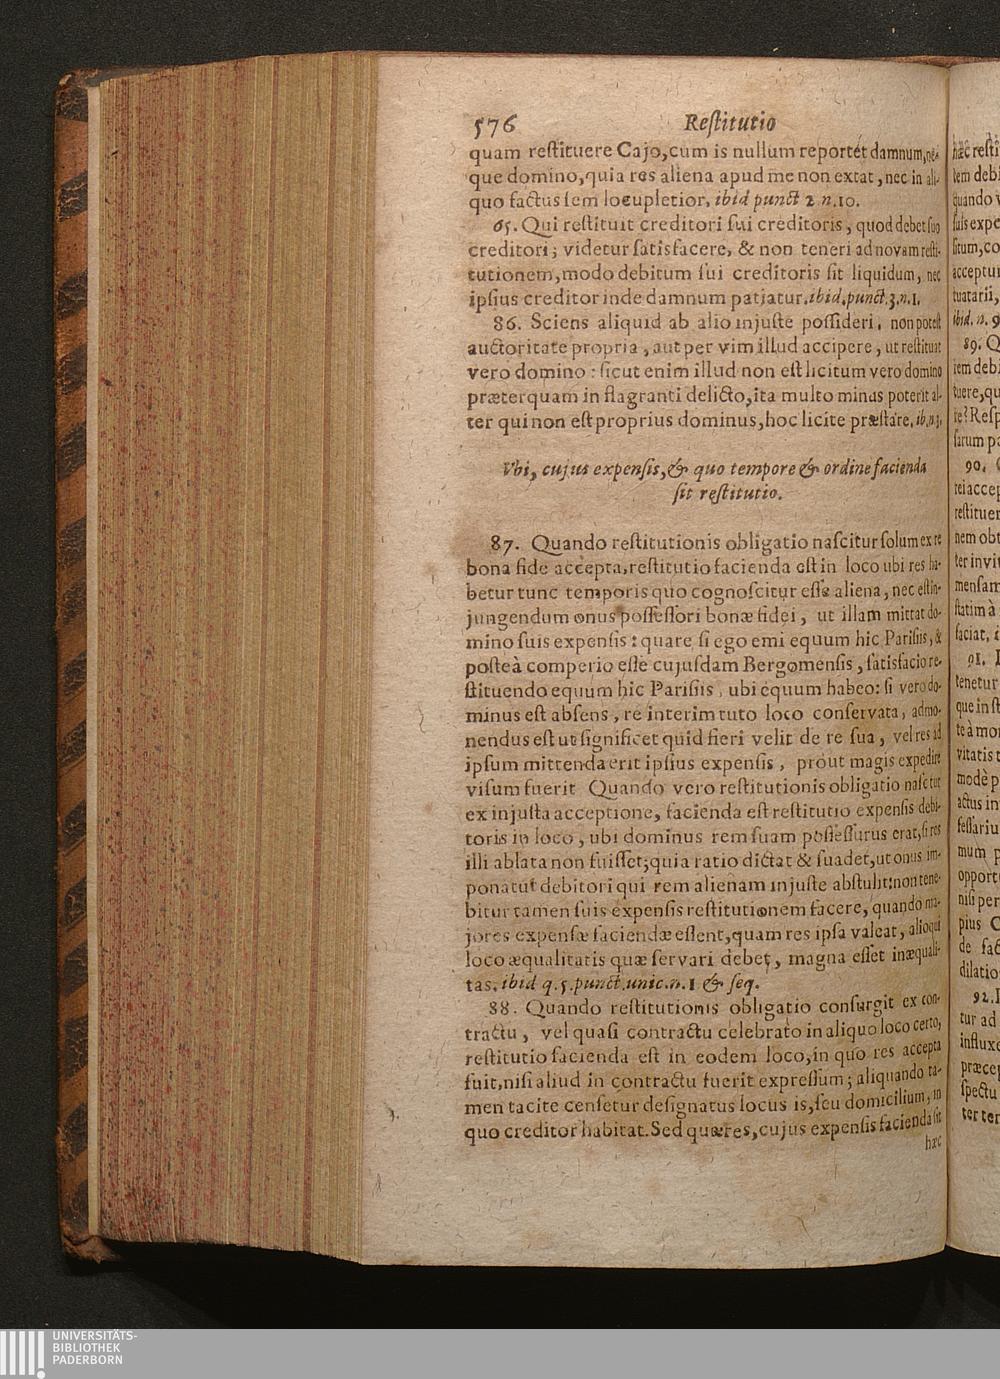 576 Reſtitutio
quam reſtituere Cajo,cum is nullum reportet damnum,ne-
que domino,quia res aliena apud me non extat, nec in ali-
quo factus ſem locupletior, ibid punct 2 n.10.
65. Qui reſtituit creditori ſui creditoris, quod debet ſuo
creditori; videtur ſatisfacere, & non teneri ad novam reſti-
tutionem,modo debitum ſui creditoris ſit liquidum, nec
ipſius creditor inde damnum patiatur.ibid.punct.3.n.1.
86. Sciens aliquid ab alio injuſte poſſideri, non poteſt
auctoritate propria, aut per vim illud accipere, ut reſtituat
vero domino: ſicut enim illud non eſt licitum vero domino
præterquam in flagranti delicto,ita multo minus poterit al-
ter qui non eſt proprius dominus,hoc licite præſtare, ib.n.3.
Vbi, cujus expenſis,& quo tempore & ordine facienda
ſit reſtitutio.
87. Quando reſtitutionis obligatio naſcitur ſolum ex re
bona fide accepta,reſtitutio facienda eſt in loco ubi res ha-
betur tunc temporis quo cognoſcitur eſſe aliena, nec eſt in-
jungendum onus poſſeſſori bonæ fidei, ut illam mittat do-
mino ſuis expenſis: quare ſi ego emi equum hic Pariſiis, &
poſteà comperio eſſe cujuſdam Bergomenſis, ſatisfacio re-
ſtituendo equum hic Pariſiis, ubi equum habeo: ſi vero do-
minus eſt abſens, re interim tuto loco conſervata, admo-
nendus eſt ut ſignificet quid fieri velit de re ſua, vel res ad
ipſum mittenda erit ipſius expenſis, prout magis expedire
viſum fuerit Quando vero reſtitutionis obligatio naſcitur
ex injuſta acceptione, facienda eſt reſtitutio expenſis debi-
toris in loco, ubi dominus rem ſuam poſſeſſurus erat,ſi res
illi ablata non fuiſſet;quia ratio dictat & ſuadet,ut onus im-
ponatur debitori qui rem alienam injuſte abſtulit:non tene-
bitur tamen ſuis expenſis reſtitutionem facere, quando ma-
jores expenſæ faciendæ eſſent,quam res ipſa valeat, alioqui
loco æqualitatis quæ ſervari debet, magna eſſet inæquali-
tas, ibid q.5.punct.unic.n.1 & ſeq.
88. Quando reſtitutionis obligatio conſurgit ex con-
tractu, vel quaſi contractu celebrato in aliquo loco certo,
reſtitutio facienda eſt in eodem loco,in quo res accepta
fuit,niſi aliud in contractu fuerit expreſſum; aliquando ta-
men tacite cenſetur deſignatus locus is,ſeu domicilium, in
quo creditor habitat.Sed quæres,cujus expenſis facienda ſit
hæc
hæc reſti
tem debi
quando v
ſuis expe
ſitum,co
acceptu
tuatarii,
ibid. n. 9
89. Q
tem debi
tuere,qu
re? Reſp
ſarum pa
90. 
rei accep
reſtituer
nem obt
ter invi
menſam
ſtatim à
faciat, i
91. I
tenetur
que in ſt
te à mor
vitatis t
modè p
actus in
feſſariu
mum p
opport
niſi per
pius C
de fac
dilatio
92.I
tur ad
influx
præce
ſpectu
ter ter
UNIVERSITÄTS-
BIBLIOTHEK
PADERBORN